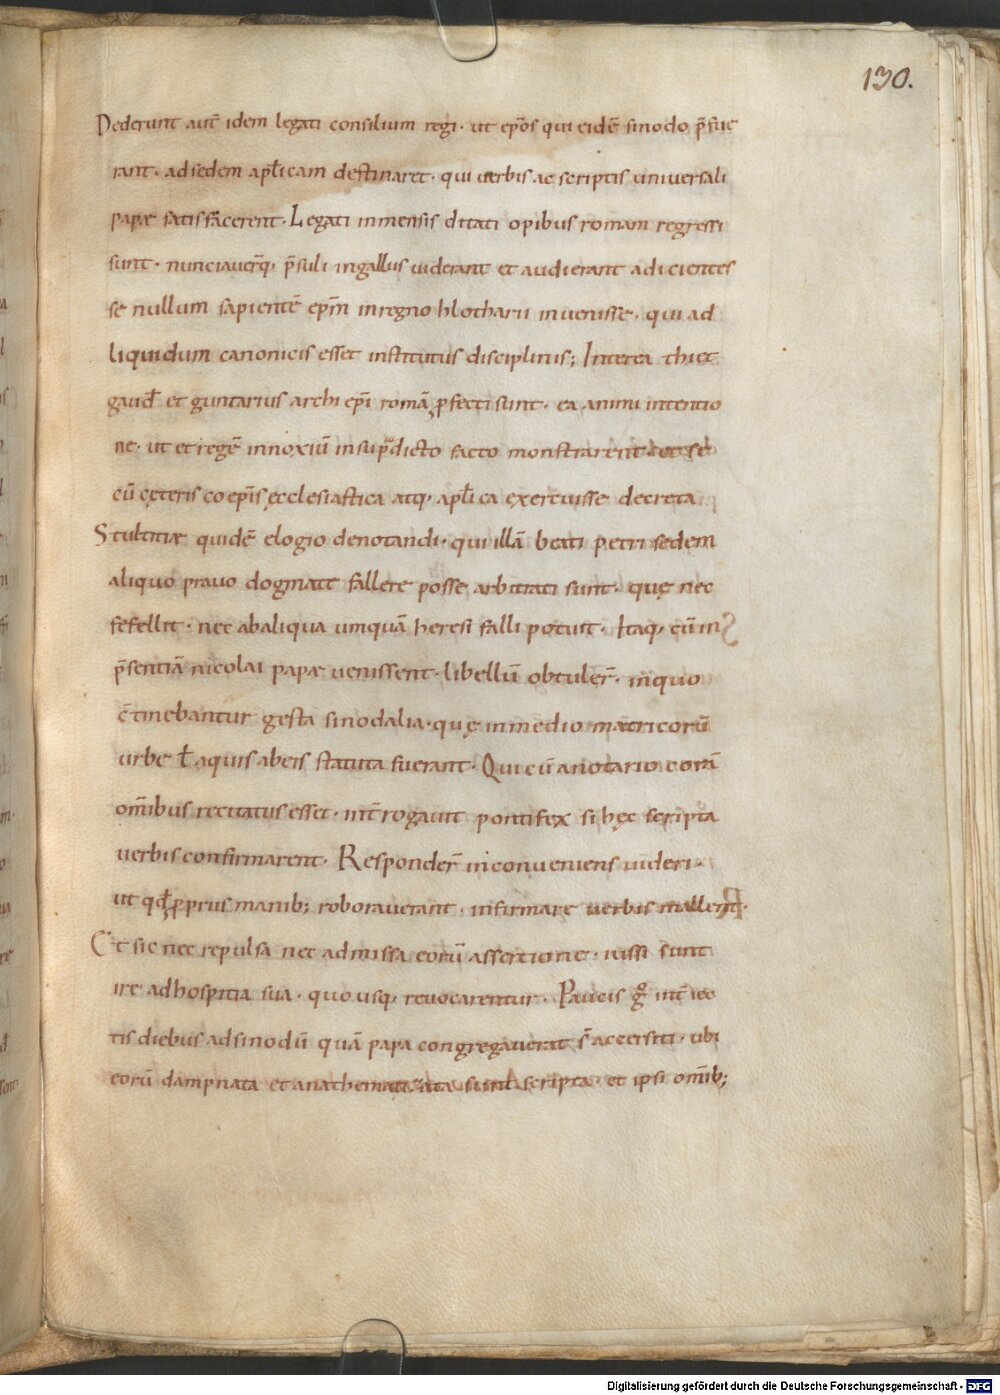 130.
Dederunt aut̄ idem legati consilium regi · ut ep̄os qui eidē sinodo p̄fue
rant · ad sedem apłicam destinaret · qui verbis ac scriptis universali
papæ satisfacerent · Legati inmensis ditati opibus romam regressi
sunt · nunciaverq, p̄suli in galliis viderant et audierant adicientes
se nullum sapientē ep̄m in regno hlotharii invenisse · qui ad
liquidum canonicis esset institutus disciplinis; Interea thiet
gaud̄ et guntarius archi ep̄i romā ꝓfecti sunt · ea animi intentio
ne · ut et regē innoxiū in sup̄dicto facto monstrarent · et se
cū cęteris coep̄is ęcclesiastica atq, apłica exercuisse decreta
Stultitiæ quidē elogio denotandi · qui illā beati petri sedem
aliquo pravo dogmate fallere posse arbitrati sunt · quę nec
fefellit · nec ab aliqua umquā heresi falli potuit · Itaq, cū in
p̄sentiā nicolai papæ venissent · libellū obtuler̄ · in quo
c̄tinebantur gesta sinodalia · quę in medio matricorū
urbe ł aquis ab eis statuta fuerant · Qui cū a notario corā
om̄ibus recitatus esset · int̄rogavit pontifex si hęc scripta
verbis confirmarent · Responder̄ inconveniens videri ·
ut qd̄ ꝓpriis manib; roboraverant · infirmare verbis mallent ·
Et sic nec repulsa nec admissa eorū assertione · iussi sunt
ire ad hospitia sua · quousq, revocarentur · Paucis gͦ int̄iec
tis diebus ad sinodū quā papa congregaverat s̄ accersiti · ubi
eorū dampnata et anathematizata sunt scripta · et ipsi om̄ib;
Digitalisierung gefördert durch die Deutsche Forschungsgemeinschaft - DFG